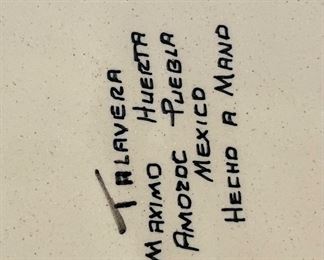 TALAVERA
MAXIMO HUERTA
AMOZOC PUEBLA
MEXICO
HECHO A MANO